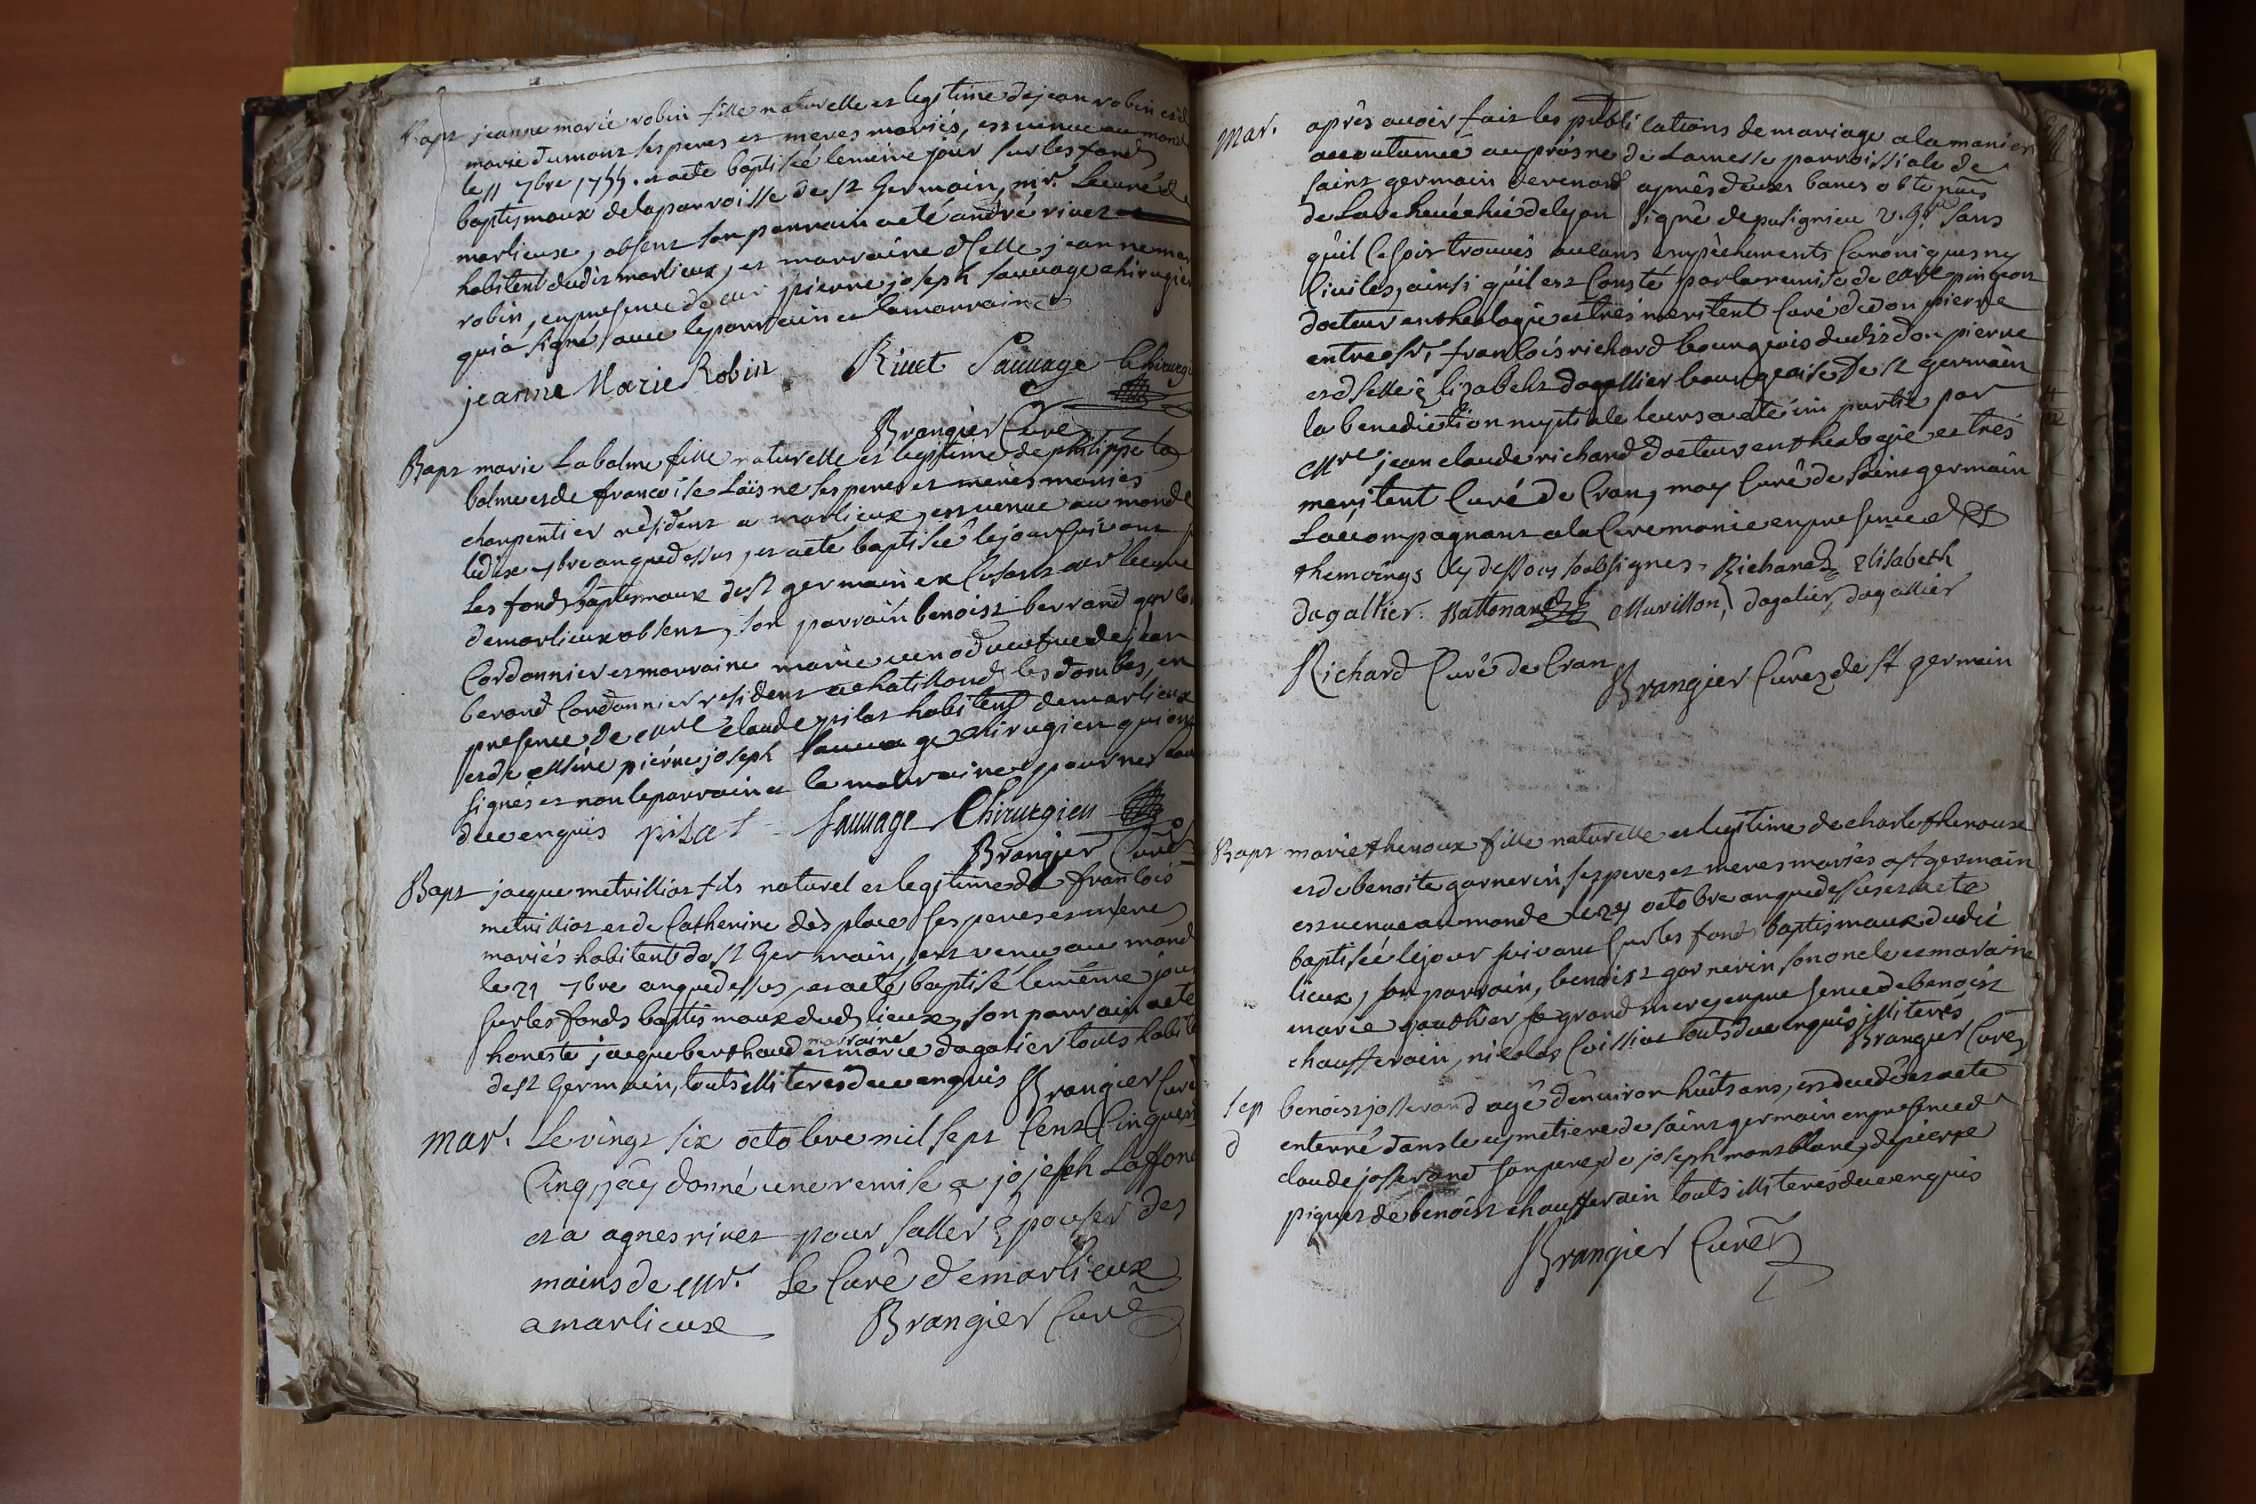 Bapt jeanne marie robin fille naturelle et legitime de jean robin et d
marie dumont ses peres et meres mariés, est venue au mond
le 11 7bre 1755. et a eté baptisée le même jour sur les fonds
baptismaux de la parroisse de st Germain, mr. Le curé de
marlieux, absent son parrain a eté andré rivet et
habitent dudit marlieux, et marraine dselle jeanne mar
robin, en presence de pierre joseph sauvage chirugien
qui a signé avec le parrain et la marraine
jeanne Marie Robin Rivet Sauvage Chirurgi
Brangier Curé
Bapt marie Labalme fille naturelle et legitime de philippe la
balme et de francoise Laisne ses peres et mères mariés
charpentier résident a marlieux, est venue au monde
le dix 7bre an que dessus, et a eté baptisée le jour suivant
Les fonds baptismaux de st germain
de marlieux absent, son parrain benoist berrand
Cordonnier et marraine marie veuve de jean
berond Cordonnier resident a chatillond les dombes, en
presence de mre claude pilat habitent de marlieux
et de messire pierre joseph sauvage chirugien qui ont
signés et non le parrain et la marraine pour ne
due enquis pilat Sauvage Chirurgien
Brangier Curé
Bapt jacque metrillior fils naturel et legitime de francois
metrillior et de Catherine des place ses peres et mere
mariés habitent de st Germain, est venu au mond
le 21 7bre an que dessus, et a eté baptisé le même jour
sur les fonds baptismaux dud lieux, son parrain a ete
honeste jacque berthaud et marraine marie dagalier touts habite
de st Germain, touts illiteres due enquis Brangier Curé
mar. Le vingt six octobre mil sept Cent Cinquent
Cinq, j'ay donné une remise a joseph Laffon
et a agnes rivet pour saller Epouser des
mains de mr. Le Curé de marlieux
a marlieux Brangier Curé
mar. après avoir fait les publications de mariage a la manier
accoutumée au prosne de La messe parroissiale de
saint germain de renon après deux bancs obtenus
de L'archevéché de lyon signé de pusignieu v. gl. sans
qu'il se soit trouvés aucuns empêchements Canoniques ny
Civiles, ainsi qu'il est Consté par la remise de mre pingeon
docteur en theologie et très meritent Curé de don pierre
entre sr. francois richard bourgeois dudit don pierre
et dselle Elizabeht dagallier bourgeoise De st germain
la benediction nuptiale leurs a eté imi partie par
mre jean claude richard docteur en theologie et très
meritent Curé de Cran, moy Curé de saint germain
L'accompagnant a la Ceremonie en presence d
themoings cy dessous soubsignes. Richard Elisabeth
dagallier. Battonard Murillon dagalier dagallier
Richard Curé de Cran Brangier Curé de st germain
Bapt marie thenoux fille naturelle et legitime de charle thenoux
et de benoite garnerin ses peres et meres mariés a st germain
est venue au monde le 24 octobre an que dessus et a ete
baptisée le jour suivant sur les fonds baptismaux dudit
lieux, son parrain, benoist garnerin son oncle et maraine
marie gauthier sa grand mere, en presence de benoist
chausserain, nicolas Coillias touts due enquis illiterés
Brangier Curé
sep
d
benoist josserand agé d'environ huit ans, est decedé et a ete
enterré dans le cymetiere de saint germain en presence d
claude josserand son pere, de joseph montblanc, de pierre
piquet de benoist chausserain touts illiteres due enquis
Brangier Curé